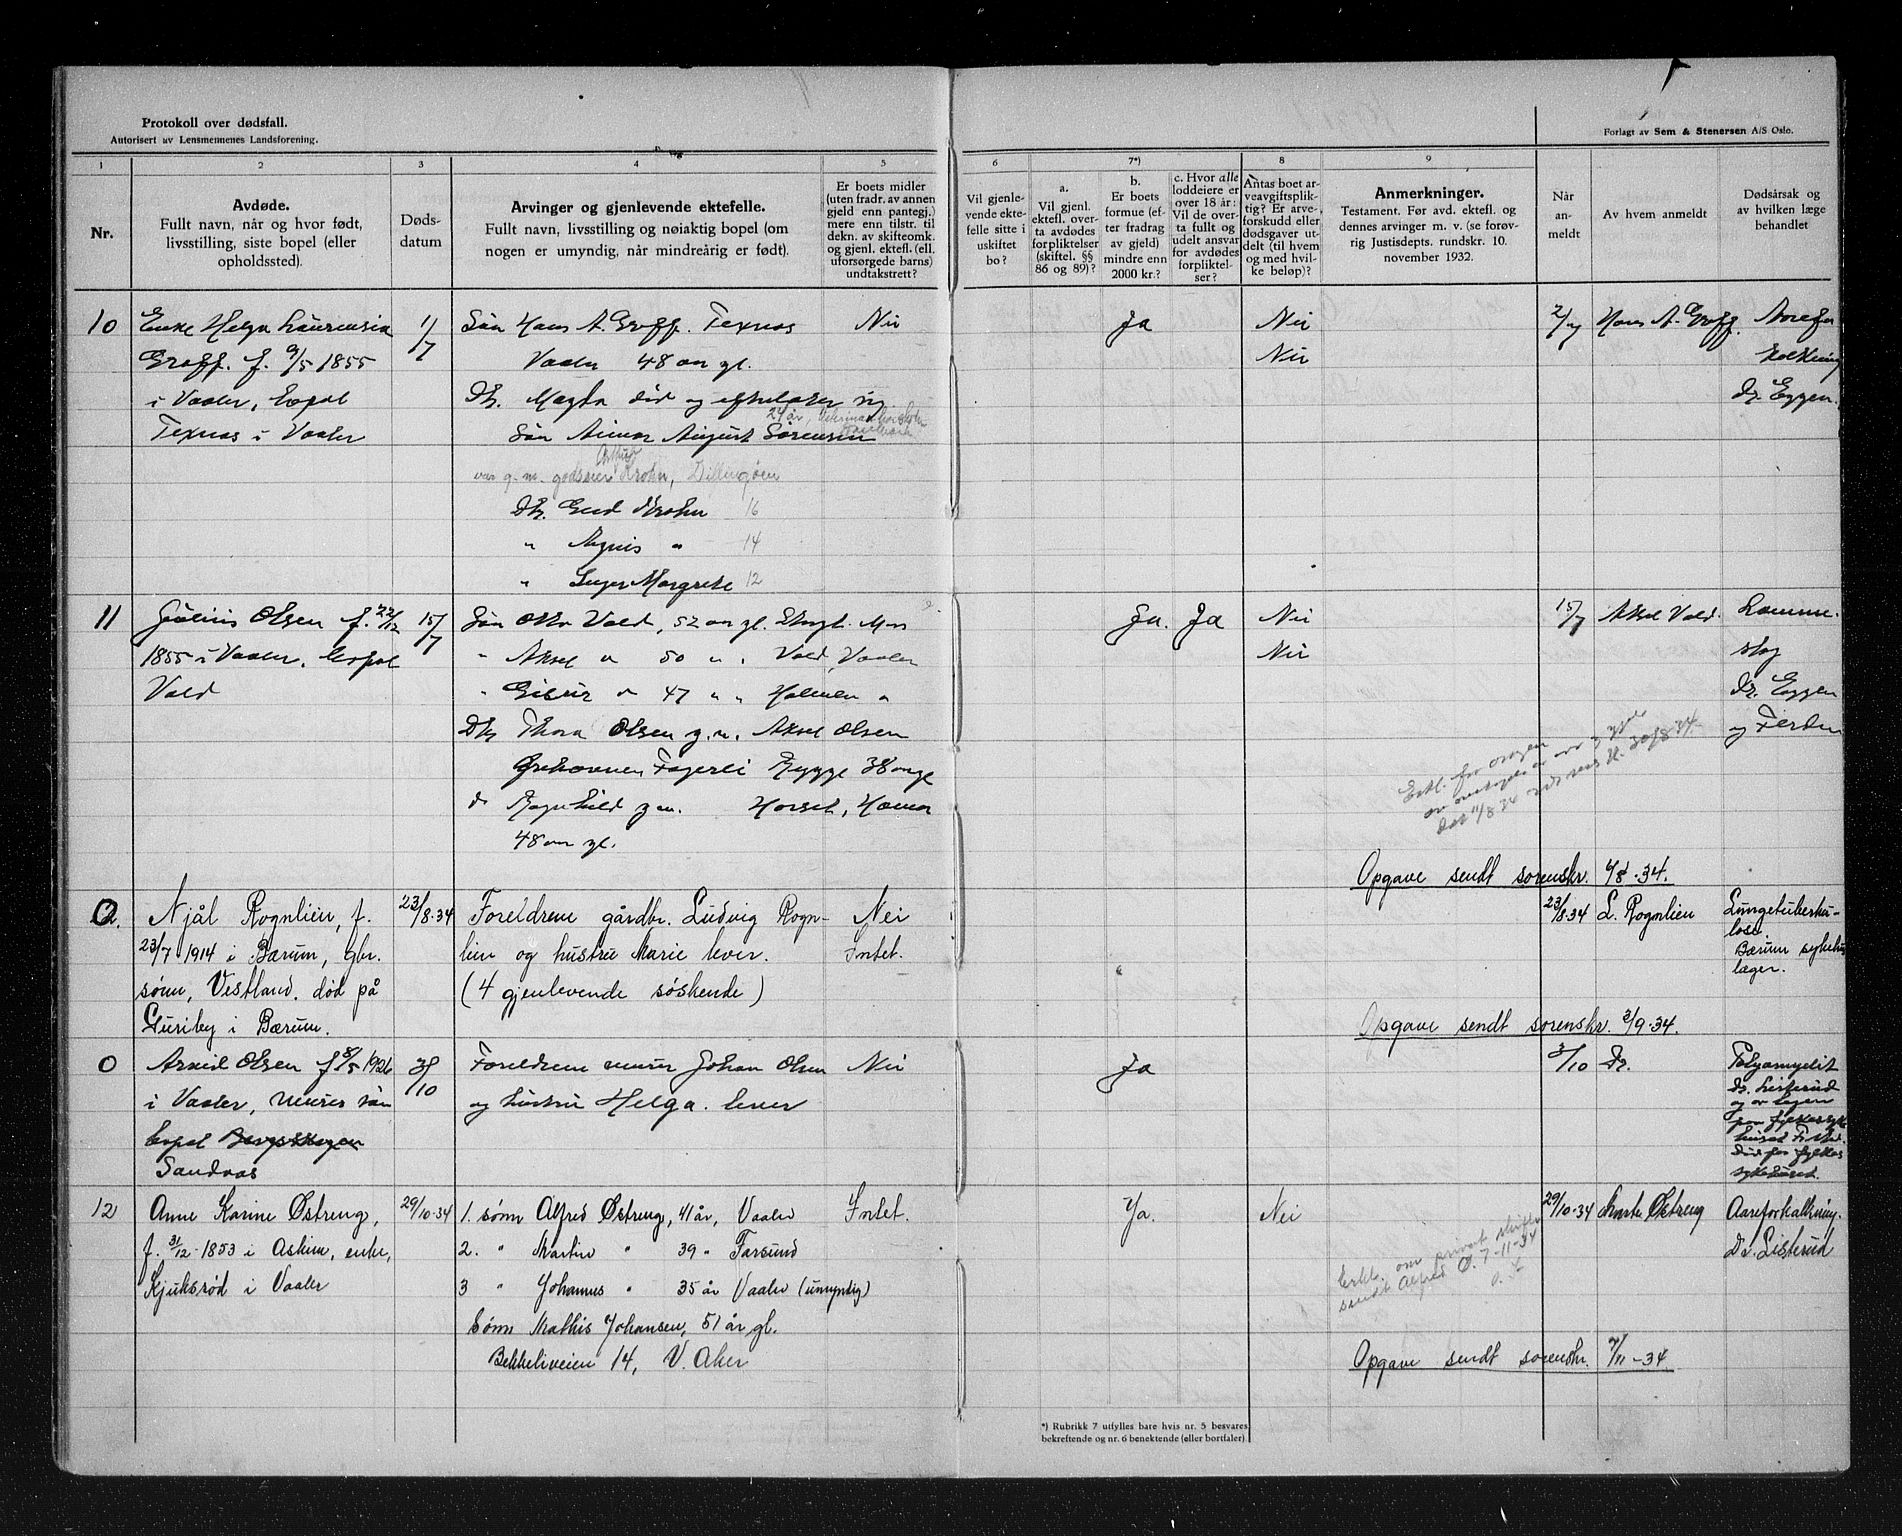 Protokoll over dødsfall.
Autorisert av Lensmennenes Landsforening.
Forlagt av Sem & Stenersen A/S Oslo.
1 2 3 4 5 6 7*) 8 9
Nr.
Avdøde.
Fullt navn, når og hvor født,
livsstilling, siste bopel (eller
opholdssted).
Døds-
datum
Arvinger og gjenlevende ektefelle.
Fullt navn, livsstilling og nøiaktig bopel (om
nogen er umyndig, når mindreårig er født).
Er boets midler
(uten fradr. av annen
gjeld enn pantegj.)
mere enn tilstr. til
dekn. av skifteomk.
og gjenl. ektef. (ell.
uforsørgede barns)
undtakstrett?
Vil gjenle-
vende ekte-
felle sitte i
uskiftet
bo?
a.
Vil gjenl.
ektef. over-
ta avdødes
forpliktelser
(skiftel. §§
86 og 89)?
b.
Er boets
formue (ef-
ter fradrag
av gjeld)
mindre enn
2000 kr.?
c. Hvor alle
loddeiere er
over 18 år:
Vil de over-
ta fullt og
udelt ansvar
for avdødes
forpliktel-
ser?
Antas boet ar-
veavgiftsplik-
tig? Er arve-
forskudd eller
dødsgaver ut-
delt (til hvem
og med hvil-
ke beløp)?
Anmerkninger.
Testament. Før avd. ektefl. og
dennes arvinger m. v. (se forøv-
rig Justisdepts. rundskr. 10.
november 1932.
Når
an-
meldt
Av hvem anmeldt
Dødsårsak og
av hvilken læge
behandlet
10
Enke Helga Laurensia
Groff. f. 9/5 1855
i Vaaler, bopel
Texnas i Vaaler
1/7
Søn Hans A. Groff. Texnas
Vaaler 48 aar gl.
Dtr. Magda død og efterlater sig
24 år,
Søn Aimar August Sørensen
Arthur
var g. m. godseier Krohn, Dillingøen
Dtr. Gerd Krohn 16
" Agnes " 14
" Inger Margrete 12
Nei
Ja
Nei
Nei
2/7
Hans A. Groff.
Aarefor
kalkning
Dr. Eggen.
11
Julius Olsen f. 22/12
1855 i Vaaler, bopel
Vold
15/7
Søn Otto Vold, 52 aar gl. Moss
" Aksel " 50 " " Vold, Vaaler
" " 47 " " Holmen "
Dtr Thora Olsen g.m. Aksel Olsen
Fagerli Rygge 38 aar gl
d Ragnhild g m. Horset, Hamar
48 aar gl.
Ja. Ja
Nei
Nei
15/7
Aksel Vold.
Lamme-
slag
Dr. Eggen
og Ferden
Opgave sendt sorenskr. 4/8-34.
12.
Njål Rognlien, f.
23/7 1914 i Bærum, gbr.
sønn, Vestland. død på
Guriby i Bærum.
23/8-34
Foreldrene gårdbr. Ludvig Rogn-
lien og hustru Marie lever.
(4 gjenlevende søskende)
Nei
Intet.
23/8-34
L. Rognlien
Lungetuberku-
lose.
Bærum sykehus
læger.
Opgave sendt sorenskr. 3/9-34.
0
Arvid Olsen f 8/5 1926
i Vaaler, murer søn
bopel
Sandaas
Foreldrene murer Johan Olsen
og hustru Helga. lever
Nei
Ja
3/10
Dr.
Polyamyelit
Dr. Listerud
og av legen
paa fylkessyke
huset
Død paa fylkes
sykehuset.
12
Anne Karine Østreng,
f. 31/12-1853 i Askim, enke,
Kjuksrød i Vaaler
29/10-34
1. sønn Alfred Østreng, 41 år, Vaaler
2. " Martin " 39 " Farsund
3 " Johannes " 35 år Vaaler (umyndig)
Sønn Mathis Johansen, 51 år gl.
Bekkeliveien 14, V. Aker
Intet.
Ja.
Nei
29/10-34
Marte Østreng
Aareforkalkning.
Dr. Listerud
Erkl. om privat skifte
sendt Alfred Ø. 7-11-34
Opgave sendt sorenskr. 7/11-34
*) Rubrikk 7 utfylles bare hvis nr. 5 besvares
bekreftende og nr. 6 benektende (eller bortfaler).